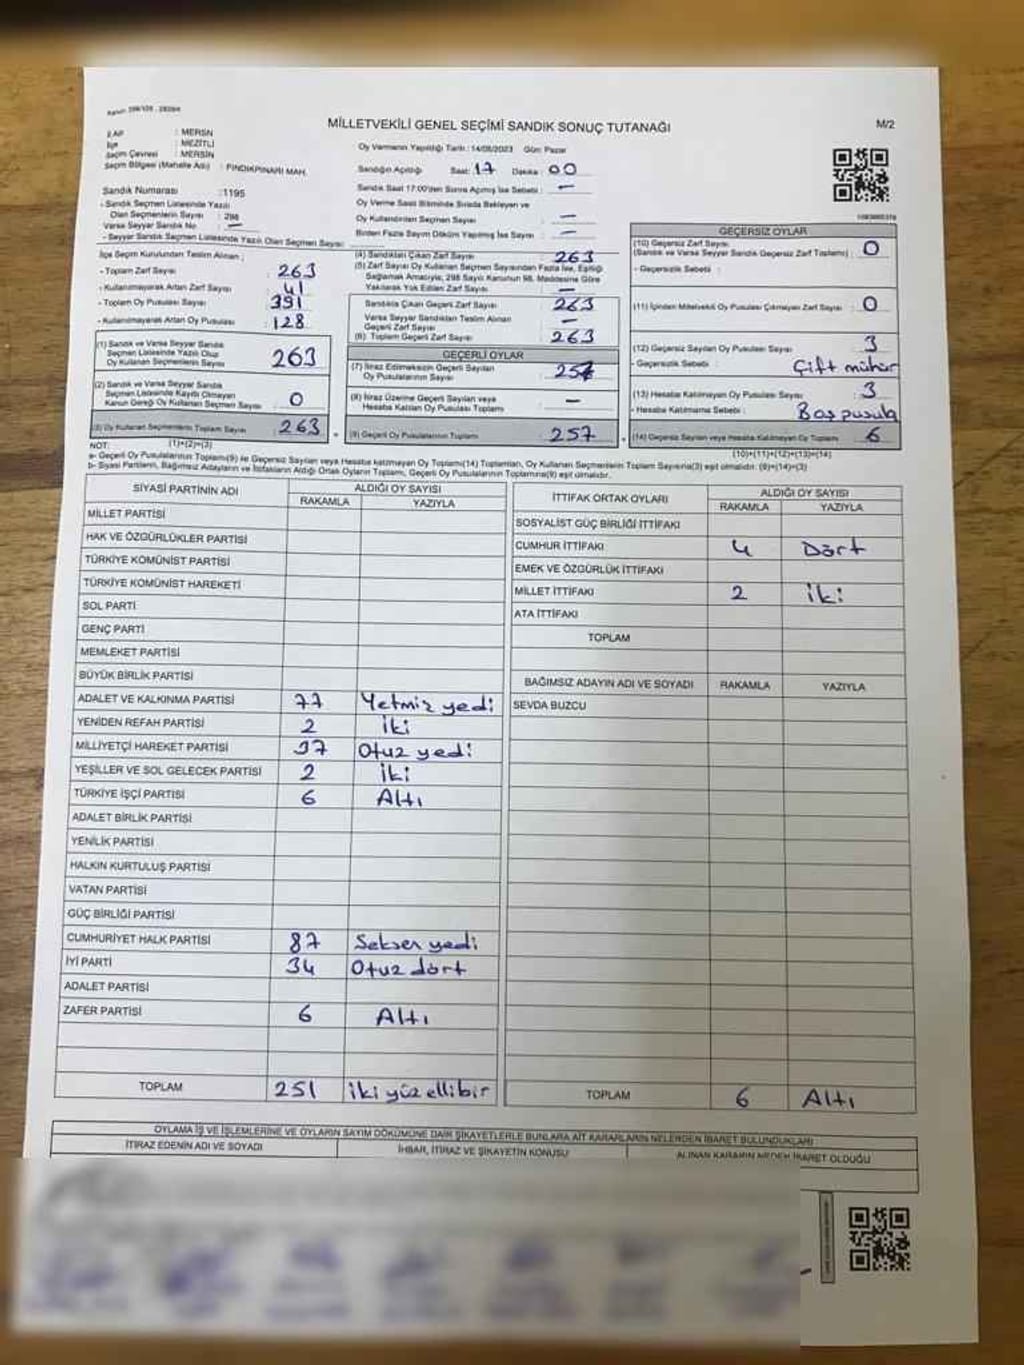 MİLLETVEKİLİ GENEL SEÇİMİ SANDIK SONUÇ TUTANAĞI
M/2
İLAP : MERSİN
İlçe : MEZİTLİ
Seçim Çevresi : MERSİN
Seçim Bölgesi (Mahalle Adı) : FINDIKPINARI MAH.
Sandık Numarası : 1195
- Sandık Seçmen Listesinde Yazılı
Olan Seçmenlerin Sayısı : 298
Varsa Seyyar Sandık No : —
- Seyyar Sandık Seçmen Listesinde Yazılı Olan Seçmen Sayısı :
Oy Vermenin Yapıldığı Tarih : 14/05/2023 Gün: Pazar
Sandığın Açıldığı Saat: 17 Dakika : 00
Sandık Saat 17:00'den Sonra Açılmış İse Sebebi : —
Oy Verme Saati Bitiminde Sırada Bekleyen ve
Oy Kullandırılan Seçmen Sayısı : —
Birden Fazla Sayım Döküm Yapılmış İse Sayısı : —
İlçe Seçim Kurulundan Teslim Alınan ;
- Toplam Zarf Sayısı : 263
- Kullanılmayarak Artan Zarf Sayısı : 41
- Toplam Oy Pusulası Sayısı : 391
- Kullanılmayarak Artan Oy Pusulası : 128
(1) Sandık ve Varsa Seyyar Sandık
Seçmen Listesinde Yazılı Olup
Oy Kullanan Seçmenlerin Sayısı : 263
(2) Sandık ve Varsa Seyyar Sandık
Seçmen Listesinde Kaydı Olmayan
Kanun Gereği Oy Kullanan Seçmen Sayısı : 0
(3) Oy Kullanan Seçmenlerin Toplam Sayısı : 263
(1)+(2)=(3)
(4) Sandıktan Çıkan Zarf Sayısı : 263
(5) Zarf Sayısı Oy Kullanan Seçmen Sayısından Fazla İse, Eşitliği
Sağlamak Amacıyla, 298 Sayılı Kanunun 98. Maddesine Göre
Yakılarak Yok Edilen Zarf Sayısı : —
Sandıkta Çıkan Geçerli Zarf Sayısı : 263
Varsa Seyyar Sandıktan Teslim Alınan
Geçerli Zarf Sayısı : —
(6) Toplam Geçerli Zarf Sayısı : 263
GEÇERLİ OYLAR
(7) İtiraz Edilmeksizin Geçerli Sayılan
Oy Pusulalarının Sayısı : 257
(8) İtiraz Üzerine Geçerli Sayılan ve
Hesaba Katılan Oy Pusulası Toplamı : —
(9) Geçerli Oy Pusulalarının Toplamı : 257
GEÇERSİZ OYLAR
(10) Geçersiz Zarf Sayısı
(Sandık ve Varsa Seyyar Sandık Geçersiz Zarf Toplamı) : 0
- Geçersizlik Sebebi :
(11) İçinden Milletvekili Oy Pusulası Çıkmayan Zarf Sayısı : 0
(12) Geçersiz Sayılan Oy Pusulası Sayısı : 3
- Geçersizlik Sebebi : Çift mühür
(13) Hesaba Katılmayan Oy Pusulası Sayısı : 3
- Hesaba Katılmama Sebebi : Boş pusula
(14) Geçersiz Sayılan veya Hesaba Katılmayan Oy Toplamı : 6
(10)+(11)+(12)+(13)=(14)
NOT:
a- Geçerli Oy Pusulalarının Toplamı(9) ile Geçersiz Sayılan veya Hesaba katılmayan Oy Toplamı(14) Toplamları, Oy Kullanan Seçmenlerin Toplam Sayısına(3) eşit olmalıdır. (9)+(14)=(3)
b- Siyasi Partilerin, Bağımsız Adayların ve İttifakların Aldığı Ortak Oyların Toplamı, Geçerli Oy Pusulalarının Toplamına(9) eşit olmalıdır.
SİYASİ PARTİNİN ADI ALDIĞI OY SAYISI
RAKAMLA YAZIYLA
MİLLET PARTİSİ
HAK VE ÖZGÜRLÜKLER PARTİSİ
TÜRKİYE KOMÜNİST PARTİSİ
TÜRKİYE KOMÜNİST HAREKETİ
SOL PARTİ
GENÇ PARTİ
MEMLEKET PARTİSİ
BÜYÜK BİRLİK PARTİSİ
ADALET VE KALKINMA PARTİSİ 77 Yetmiz yedi
YENİDEN REFAH PARTİSİ 2 İki
MİLLİYETÇİ HAREKET PARTİSİ 37 Otuz yedi
YEŞİLLER VE SOL GELECEK PARTİSİ 2 İki
TÜRKİYE İŞÇİ PARTİSİ 6 Altı
ADALET BİRLİK PARTİSİ
YENİLİK PARTİSİ
HALKIN KURTULUŞ PARTİSİ
VATAN PARTİSİ
GÜÇ BİRLİĞİ PARTİSİ
CUMHURİYET HALK PARTİSİ 87 Seksen yedi
İYİ PARTİ 34 Otuz dört
ADALET PARTİSİ
ZAFER PARTİSİ 6 Altı
TOPLAM 251 iki yüz ellibir
İTTİFAK ORTAK OYLARI ALDIĞI OY SAYISI
RAKAMLA YAZIYLA
SOSYALİST GÜÇ BİRLİĞİ İTTİFAKI
CUMHUR İTTİFAKI 4 Dört
EMEK VE ÖZGÜRLÜK İTTİFAKI
MİLLET İTTİFAKI 2 İki
ATA İTTİFAKI
TOPLAM
BAĞIMSIZ ADAYIN ADI VE SOYADI RAKAMLA YAZIYLA
SEVDA BUZCU
TOPLAM 6 Altı
OYLAMA İŞ VE İŞLEMLERİNE VE OYLARIN SAYIM DÖKÜMÜNE DAİR ŞİKAYETLERLE BUNLARA AİT KARARLARIN NELERDEN İBARET BULUNDUKLARI
İTİRAZ EDENİN ADI VE SOYADI İHBAR, İTİRAZ VE ŞİKAYETİN KONUSU ALINAN KARARIN NEDEN İBARET OLDUĞU